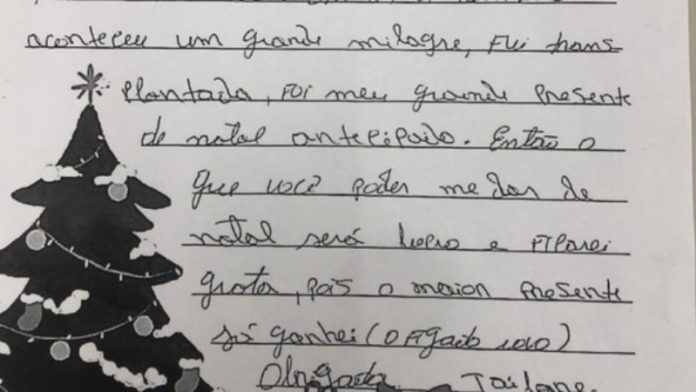 aconteceu um grande milagre, Fui trans
plantada, Foi meu grande presente
de natal antecipado. Então o
que você poder me dar de
natal será lucro e Ficarei
grata, pois o maior presente
só ganhei (O Fígado novo)
Obrigada